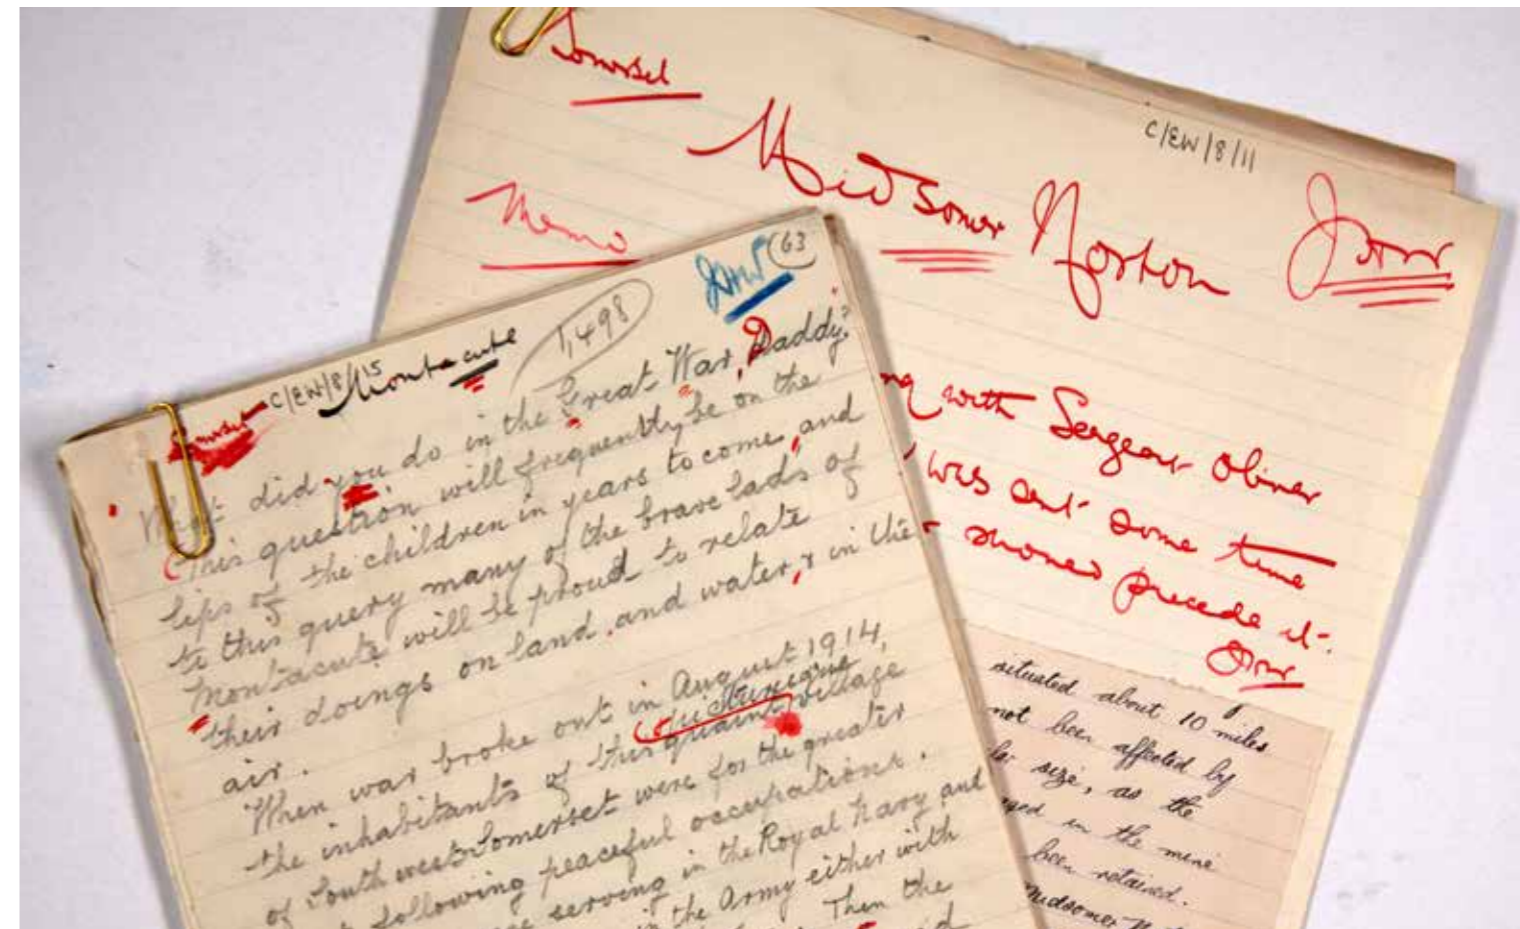 Somerset
C/EW/8/11
Midsomer Norton
Memo
with Sergeant Oliver
was sent some time
precede it.
situated about 10 miles
not been affected by
size, as the
in the mine
been retained.
Midsomer
63
1,498
C/EW/8/15
Montacute
Somerset
What did you do in the Great War, Daddy?
This question will frequently be on the
lips of the children in years to come, and
to this query many of the brave lads of
Montacute will be proud to relate
their doings on land, and water, & in the
air.
When war broke out in August 1914,
picturesque
the inhabitants of this quaint village
of South west Somerset were for the greater
following peaceful occupations.
serving in the Royal Navy and
the Army either with
Then the